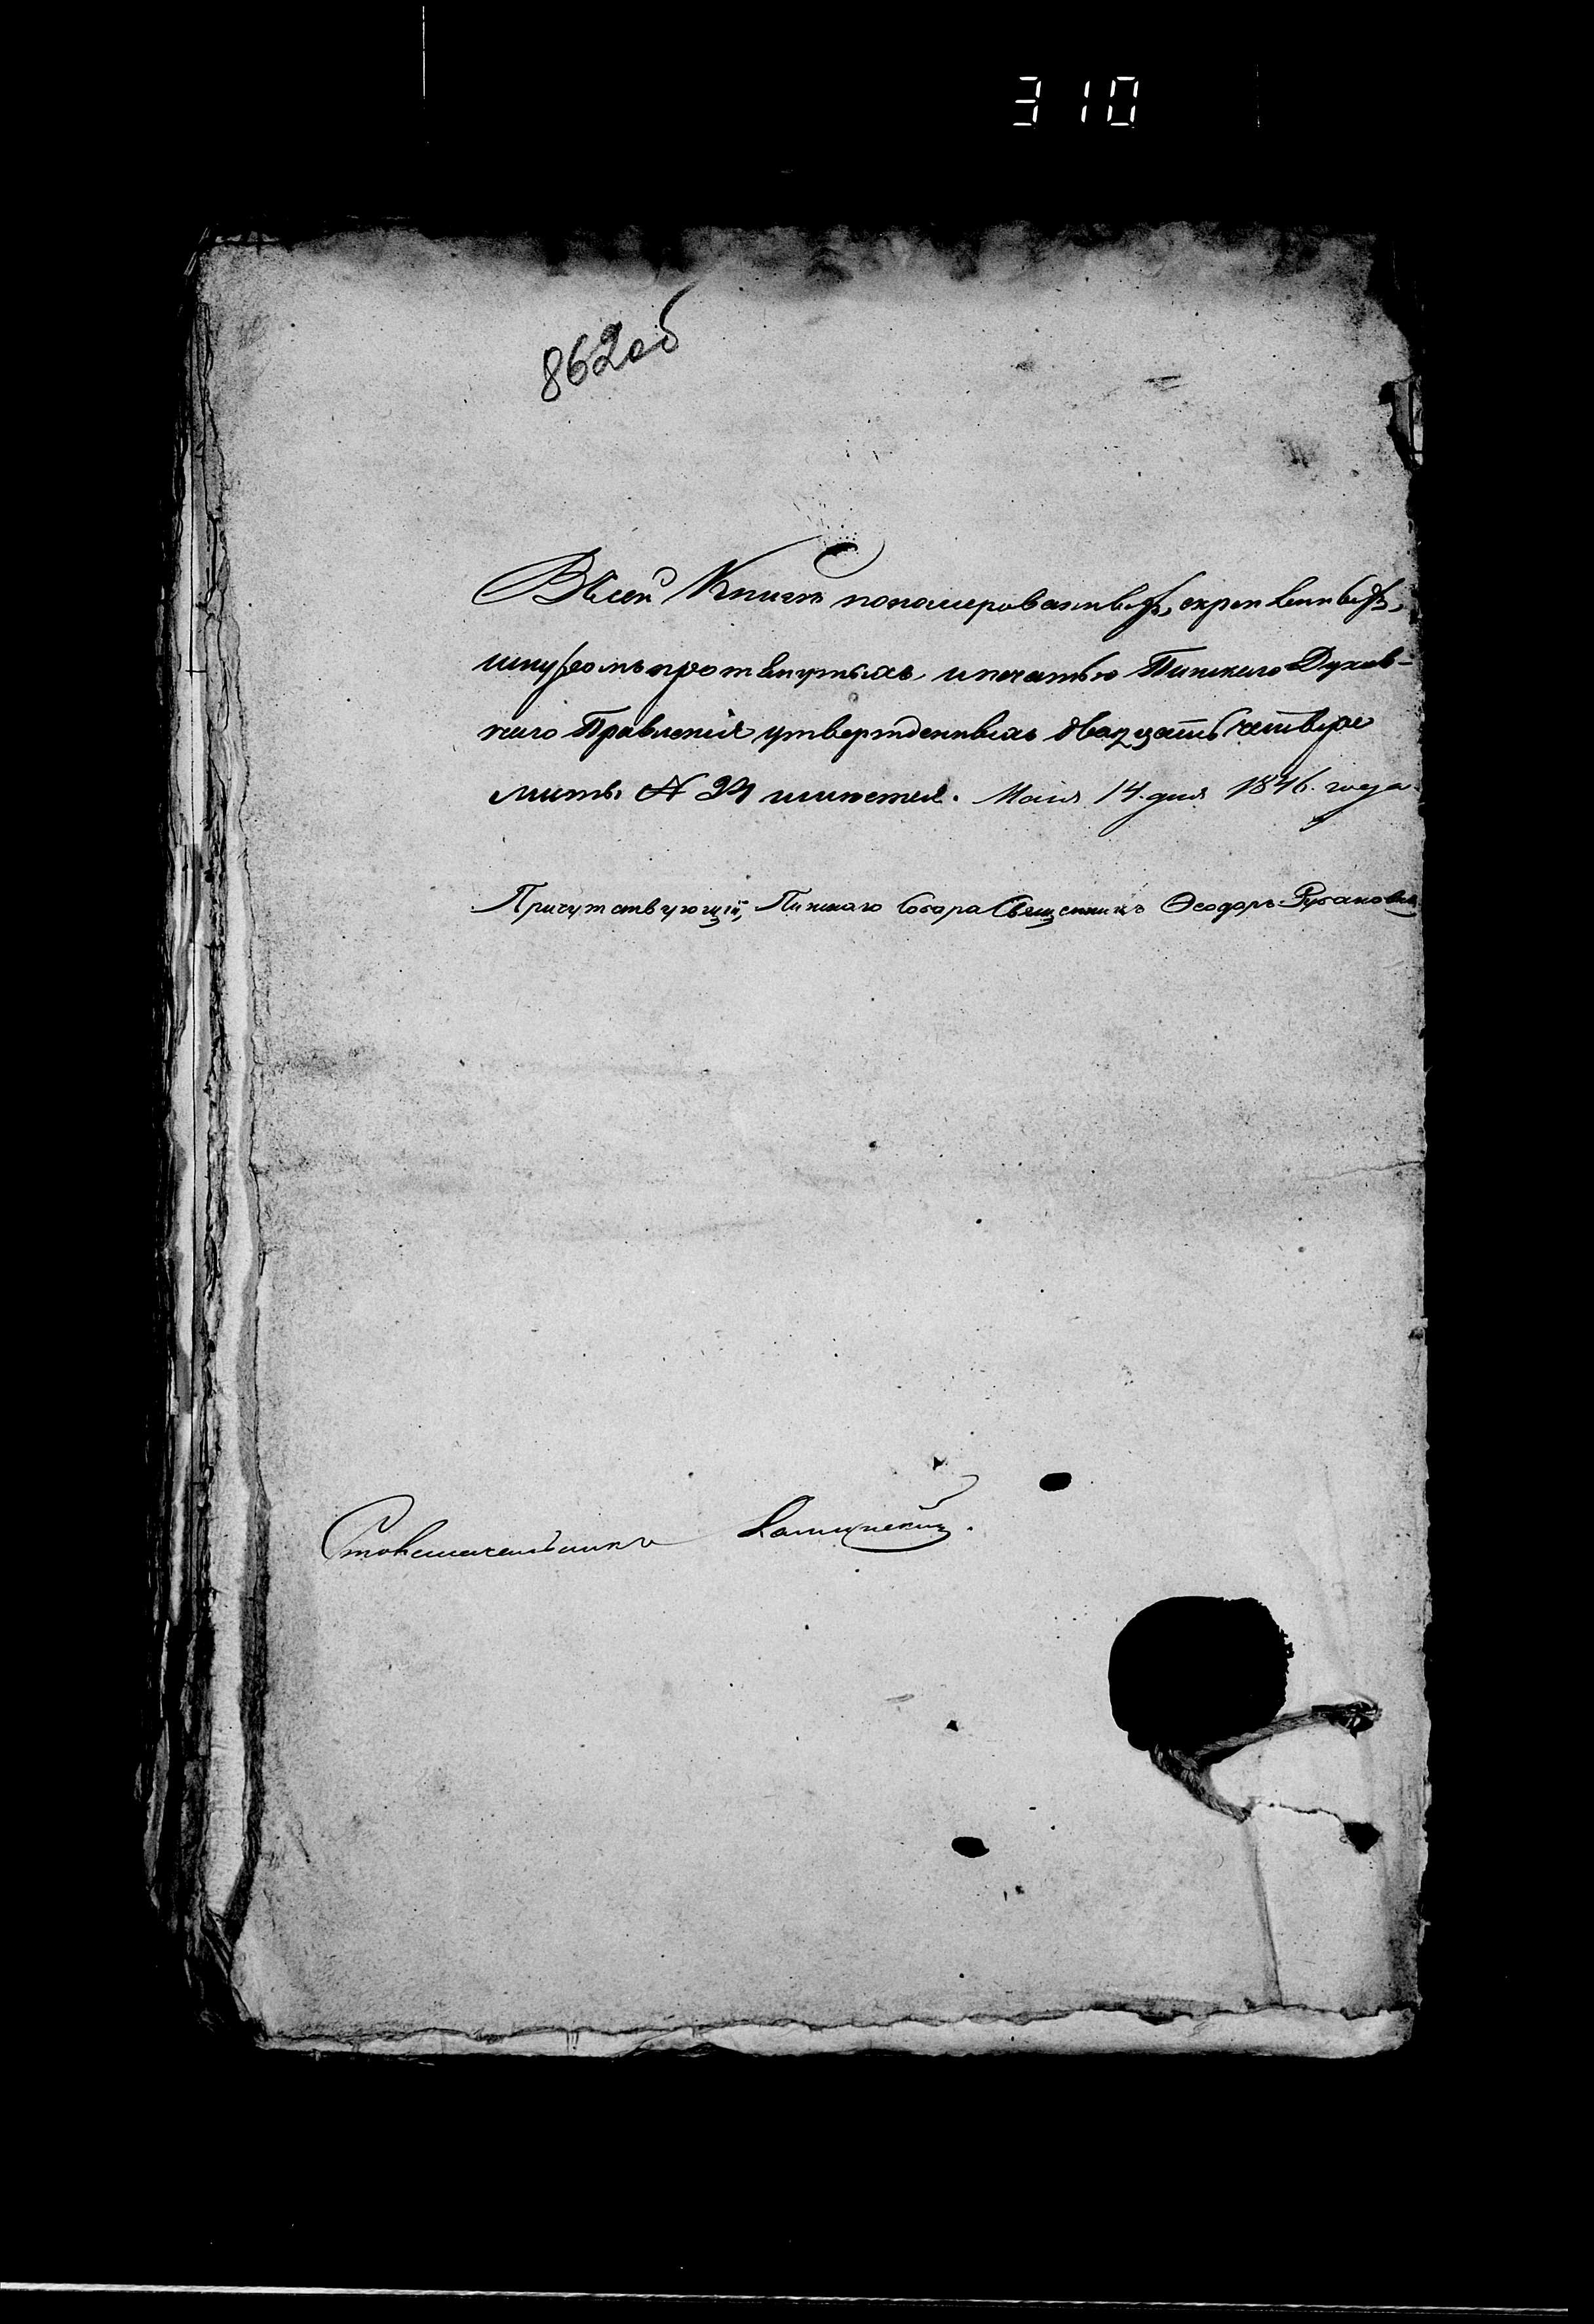 310
862об
В сей Книге пономерованныхъ, скрепленныхъ,
шнуромъ протянутыхъ, и печатью Пинскаго Духов-
наго Правленія утвержденныхъ двадцать четыре
листъ № 24 имеется. Маія 14. дня 1846. года
Присутствующій, Пинскаго Собора Священникъ Ѳеодоръ
Столоначальникъ